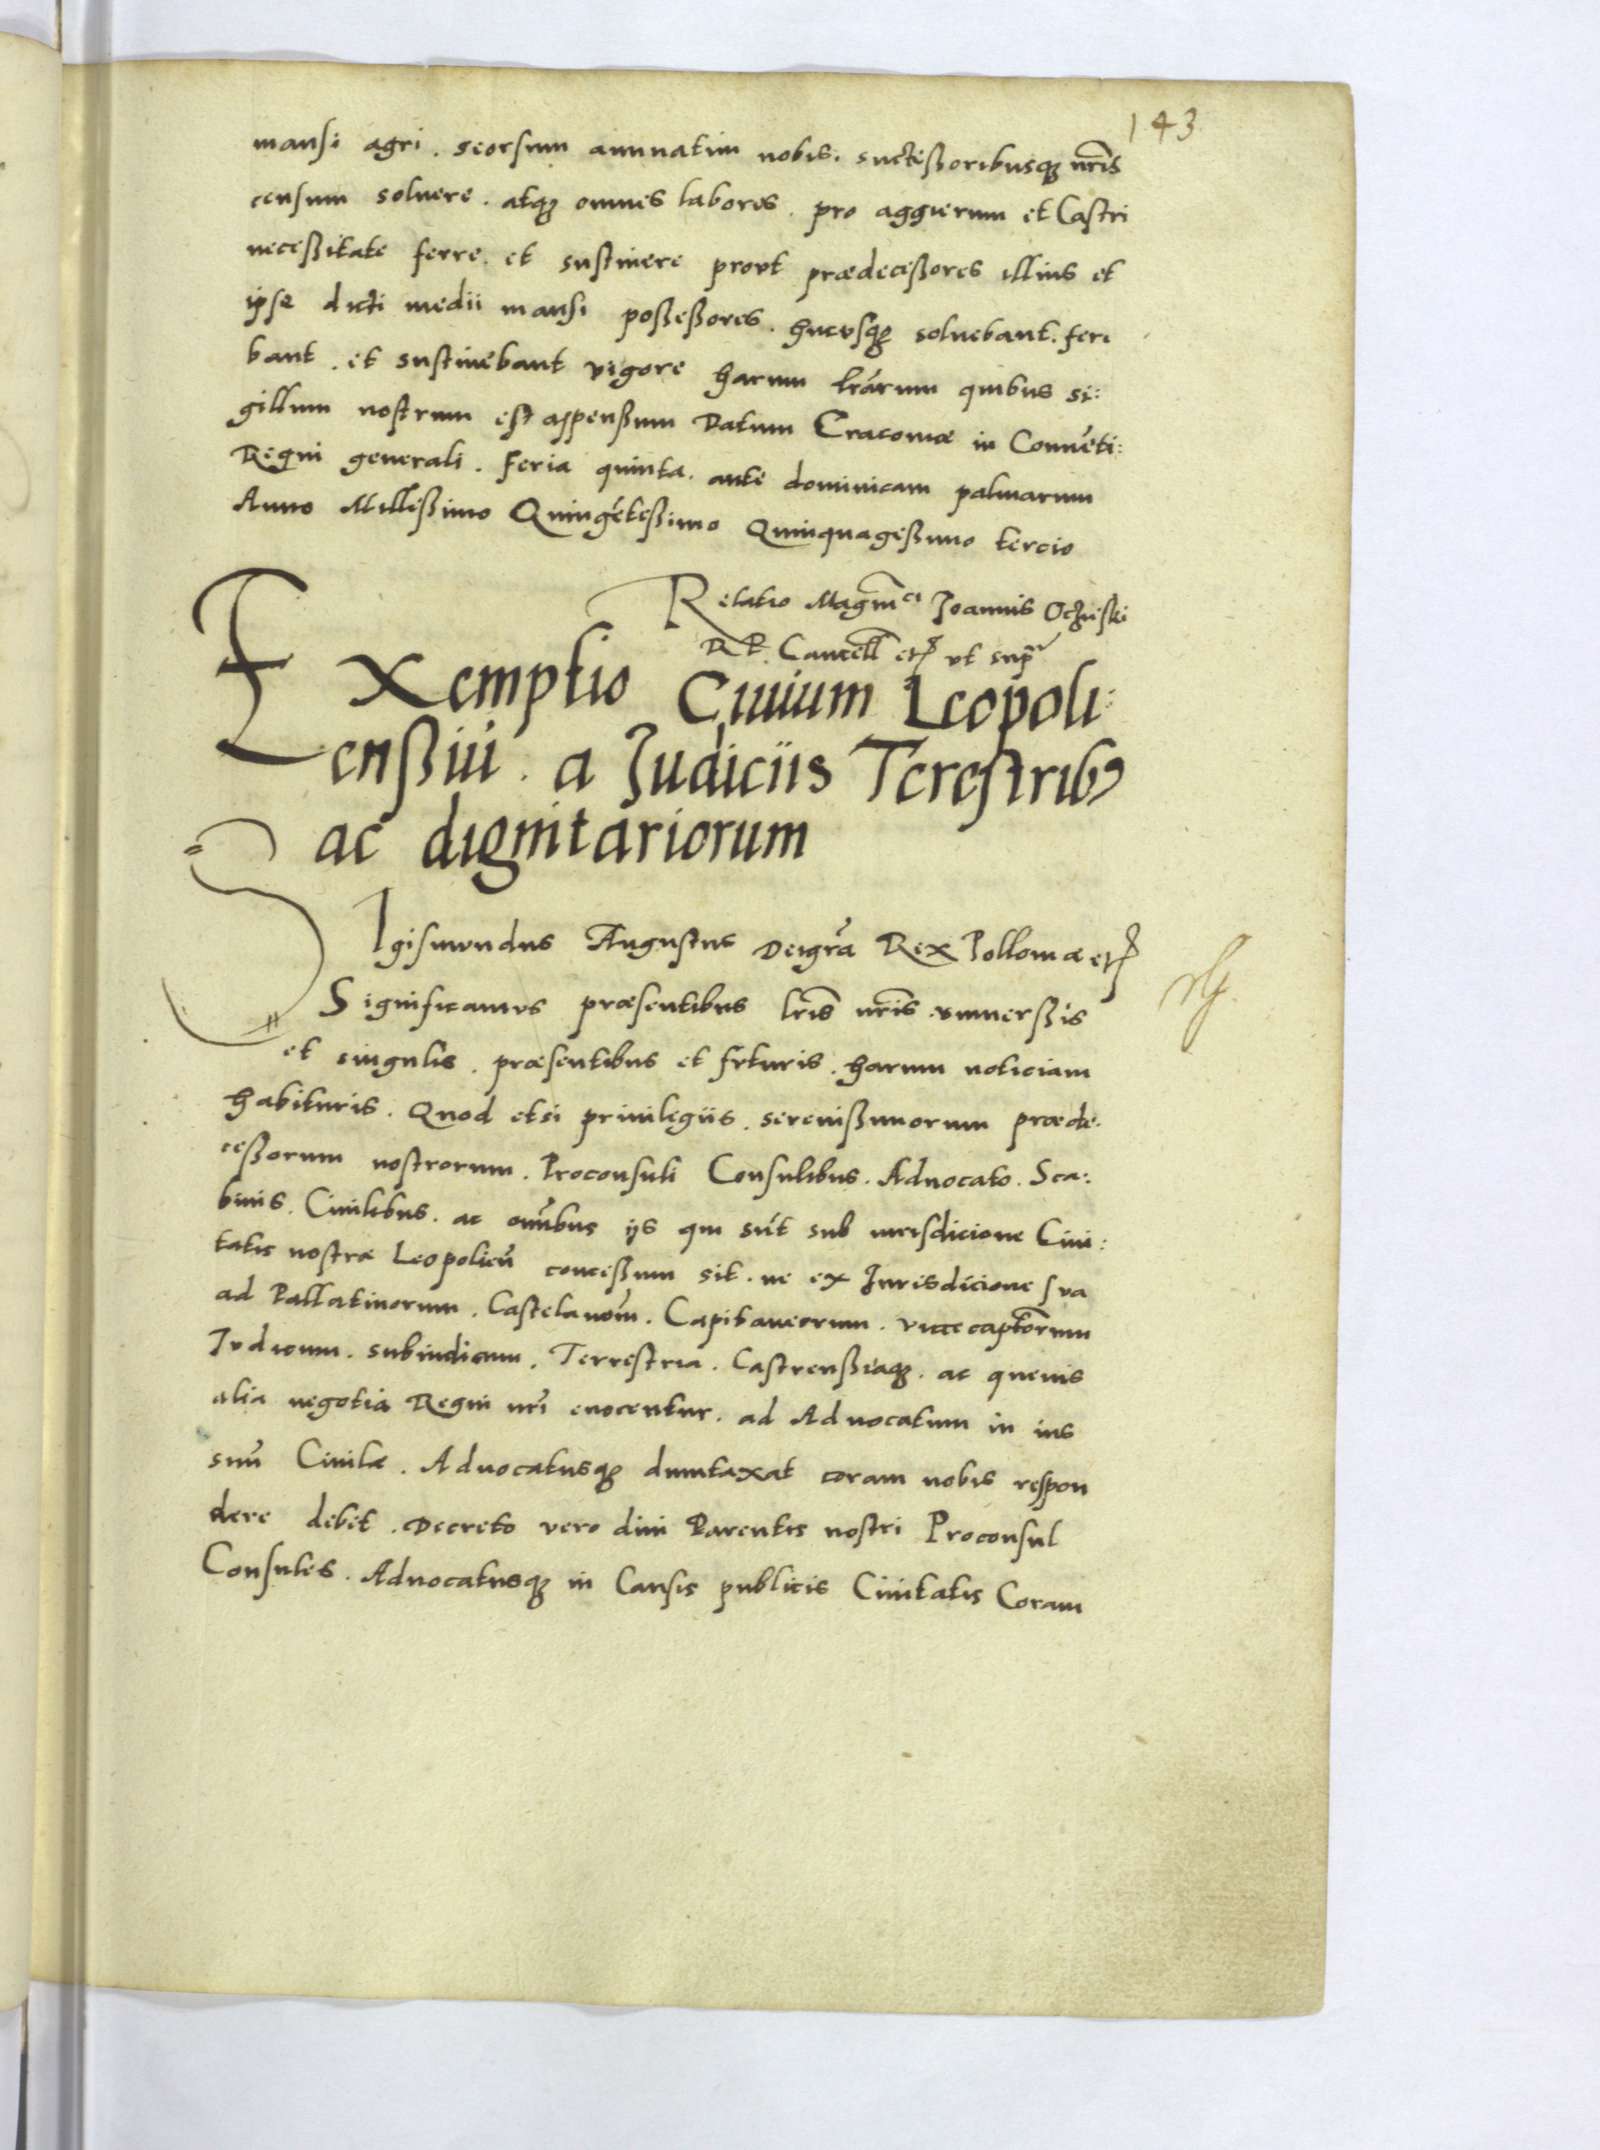 143
mansi agri. seorsum annuatim nobis. succeßoribusqȝ nr̃is
censum soluere. atqȝ omnes labores. pro aggerum et Castri
neceßitate ferre. et sustinere prout prædeceßores illius et
ipse dicti medii mansi poßeßores. hucusqȝ soluebant. feri
bant. et sustinebant vigore harum lr̃arum quibus si:
gillum nostrum est appensum Datum Cracouiæ in Conuēti:
Regni generali. feria quinta. ante dominicam palmarum
Anno Milleßimo Quingēteßimo Quinquageßimo tercio
Relatio Magnci Joannis Oczieski
R P. Cancell etc̃ vt supr̃
Exemptio Ciuium Leopoli:
enßiū. a Judiciis Terestribȝ
ac dignitariorum
SIgismundus Augustus Dei gr̃a Rex Polloniæ etc̃
Significamus præsentibus lr̃is nr̃is. vniuerßis
et singulis. præsentibus et futuris. harum noticiam
habituris. Quod etsi priuilegiis. serenißimorum præde.
ceßorum nostrorum. Proconsuli Consulibus. Aduocato. Sca:
binis. Ciuilibus. ac om̃ibus ijs qui sūt sub iurisdicione Ciui:
tatis nostræ Leopolieñ conceßum sit. ne ex Jurisdicione sua
ad Pallatinorum. Castelanom̃. Capitaneorum. vicecaptõrum
Judicum. subiudicum. Terrestria. Castrenßiaqȝ. ac queuis
alia negotia Regni nr̃i euocentur. ad Aduocatum in ius
suū Ciuile. Aduocatusqȝ duntaxat coram nobis respon
dere debet. Decreto vero diui Parentis nostri Proconsul
Consules. Aduocatusqȝ in Causis publicis Ciuitatis Coram